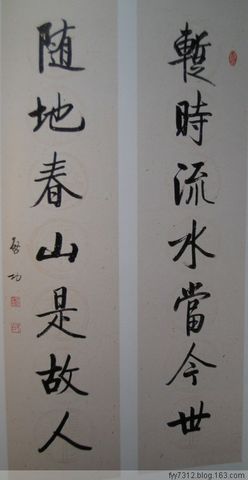 暫時流水當今世
随地春山是故人
啓功
fyy7312.blog.163.com